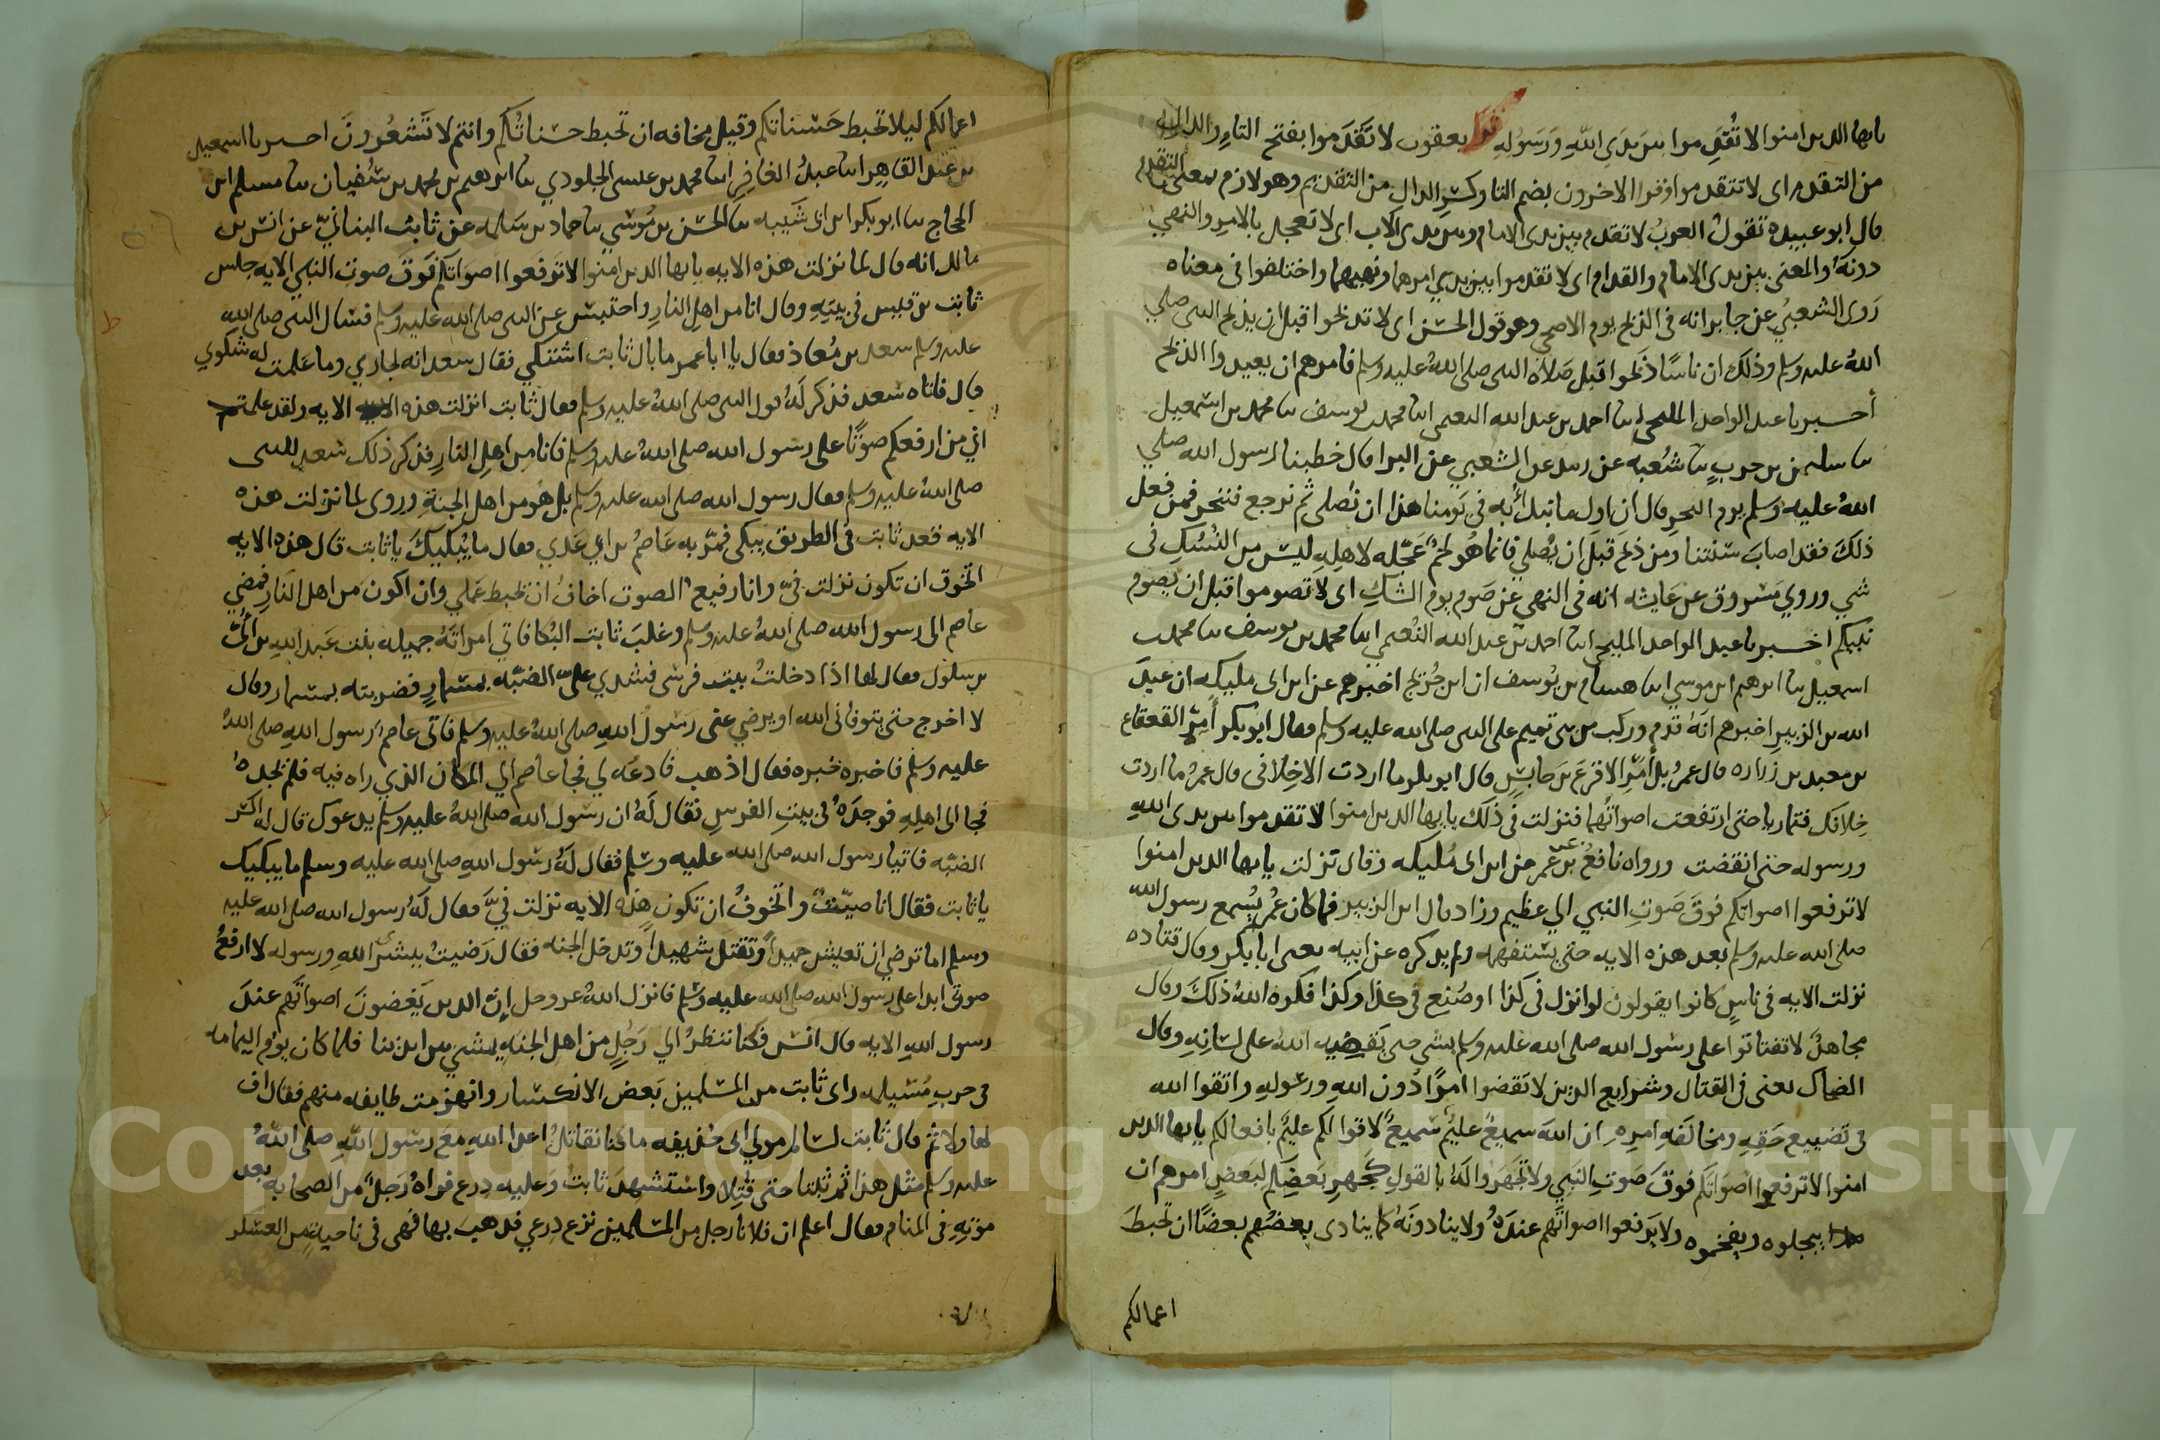 يايها الدين امنوا لا تُقَدِّموا بين يدي اللهِ وَرَسُولِهِ قرا يعقوب لا تَقَدَموا بفتح التاءِ والدال
من التقدم اى لا تتقدموا وقرا الاخرون بضم التا وكسرِ الدال من التقديم وهو لازم بمعنى التقدم
قال ابو عبيده تقول العربُ لا تقدم بين يدى الامام وبين يدى الاب اى لا تعجل بالامرِ والنهي
دونهُ والمعنى بين يدى الامام والقدام اى لا تقدموا بين يدي امرهما ونهيهما واختلفوا فى معناه
رَوى الشعبيُ عن جابر انه فى الذبح يوم الاضحى وهو قول الحسن اى لا تذبحوا قبل ان يذبح النبى صلي
اللهُ عليه وسلم وذلك ان ناسًا ذبحوا قبل صَلاه النبى صلى اللهُ عليه وسلم فامرهم ان يعيدوا الذبح
أخبرنا عبد الواحد المليحى انا احمد بن عبد الله النعيمى انا محمد بن يوسف نا محمد بن اسمعيل
نا سليمن بن حربٍ نا شُعبه عن زبيد عن الشعبي عن البرا قال خطبنا رسول الله صلي
اللهُ عليه وسلم يوم النحرِ قال ان اول ما نبدأ به في يَومنا هذا ان نُصلى ثم نرجع فننحر فمن فعل
ذلكَ فقد اصابَ سُنتنا ومن ذبح قبلَ ان يُصلي فانما هُو لحمٌ عَجّله لاهلِهِ ليسَ من النُسُكِ فى
شي وروي مَسروق عن عَايشه انه فى النهى عن صَوم يوم الشكِ اى لا تصوموا قبل ان يَصوم
نبيكم اخبرنا عبد الواحد المليحى انا احمد بن عبد الله النُعيمي انا محمد بن يوسف نا محمد بن
اسمعيل نا ابرهيم ابن موسي انا هشام بن يُوسف ان ابن جُريج اخبرهم عن ابن ابى مليكه ان عبدَ
الله بن الزبيرِ اخبرهم انَهُ قدم وركب من بنى تميم على النبى صلى الله عليه وسلم فقال ابو بكر أَمّرِ القعقاع
بن معبد بن زراره قال عمرُ بل أَمّرِ الاقرعَ بن حابسٍ قال ابو بكر ما اردت الا خِلافى قال عمرُ ما اردت
خِلافك فتماريا حتى ارتفعت اصواتُهما فنزلت فى ذلك يايها الدين امنوا لا تقدموا بين يدى اللهِ
ورسوله حتى انقضت ورواه نافعُ بن عمر عن ابن ابى مُليكه وقال نزلت يايها الدين امنوا
لا ترفعوا اصواتكم فوقَ صَوتِ النبي الي عظيم وزاد قال ابن الزبير فما كان عُمرُ يُسمع رسول الله
صلى الله عليه وسلم بعد هذه الايه حتى يستفهمه ولم يدكره عن ابيه يعنى ابا بكر وقال قتاده
نزلت الايه فى ناسٍ كانوا يقولون لوانزل فى كذا اوصُنِع فى كذا وكذا فكره اللهُ ذلكَ وقال
مجاهدٌ لا تفتاتوا على رسول الله صلى الله عليه وسلم بشي حتى يَقضِيه اللهُ على لسَانِهِ وقال
الضحاك يعنى فى القتال وشرايع الدين لا تقضوا امرًا دُون اللهِ ورسولهِ واتقوا الله
فى تَضييع حَقِهِ ومخالفَهِ امرِهِ ان اللهَ سميعٌ عليمٌ سَميعٌ لاقوالكم عليمٌ بافعالكم يايها الدين
امنوا لا ترفعوا اصوَاتكم فوقَ صَوتِ النبي ولا تَجهَرَوا لَهُ بالقولِ كَجَهرِ بَعضِكم لبَعضٍ امرهم ان
يبجلوه ويفخموه ولا يَرفعوا اصواتَهم عندَهُ ولا ينادونَهُ كما ينادى بعضُهم بعضًا ان تحبطَ
اعمالكم
اعمالكم ليلا تحبط حَسَناتكم وقيل مخافه ان تحبط حسناتُكم وانتم لا تَشعُرونَ اخبرنا اسمعيل
بن عبد القاهِرِ انا عبدُ الغافِرِ انا محمد بن عيسى الجلودي نا ابرهيم بن محمد بن سُفيان نا مسلم ابن
الحاج نا ابو بكر ابن ابى شَيبه نا الحسَن بن مُوسي نا حماد بن سَلمه عن ثابت البنانيّ عن انس بن
مالك انه قال لما نزلت هذه الايه يايها الدين امنوا لا ترفعوا اصوَاتكم فَوقَ صوت النبي الايه جلس
ثابت بن قيس فى بيتِهِ وقال انا من اهل النارِ واحتبسَ عن النبى صلى الله عليه وسلم فسَال النبى صلى الله
عليه وسلم سعد بن مُعاذ فقال يا ابا عمرو ما بال ثابت اشتكي فقال سعد انه لجاري وما عَلمت له شكوي
قال فاتاه سَعد فذكر لَهُ قول النبى صلى اللهُ عليه وسلم فقال ثابت انزلت هذه الايه ولقد علمتم
اني من ارفعكم صوتًا على رسول الله صلى اللهُ عليه وسلم فانا من اهلِ النارِ فذكر ذلك سَعد للنبى
صلى اللهُ عليه وسلم فقال رسول الله صلى الله عليه وسلم بل هُو من اهل الجنةِ وروى لما نزلت هذه
الايه قعد ثابت فى الطريق يبكى فمَرّ به عَاصمُ بن ابي عَدِي فقال ما يُبكيكَ يا ثابت قال هذه الايه
اتخوّف ان تكون نزلت فىّ وانا رفيعُ الصوت اخافُ ان تحبط عَملي وان اكون من اهل النارِ فمضي
عاصم الى رسول الله صلى اللهُ عليه وسلم وغلبَ ثابت البُكا فاتي امراتَهُ جميله بنت عَبد اللهِ بن أُبىّ
بن سلول فقال لها اذا دخلتُ بيت فرسى فشدي علىّ الضبّه بمسمارٍ فضربته بمسمار وقال
لا اخرج حتى يتوفانى الله او يرضي عنى رسولُ اللهِ صلى اللهُ عليه وسلم فاتى عاصمٌ رسول الله صلى اللهُ
عليه وسلم فاخبره خبره فقال اذهب فادعَه لي فجا عاصم الي المكان الذي راه فيه فلم يجدهُ
فجا الى اهلِهِ فوجدَهُ فى بيتِ الفرسِ فقال لَهُ ان رسول الله صلى اللهُ عليه وسلم يدعوك قال له اكسر
الضبّه فاتيا رسول الله صلى الله عليه وسلم فقال لَهُ رسُول اللهِ صلى الله عليه وسلم ما يبكيك
يا ثابت فقال انا صيّتٌ واتخوفُ ان تكون هذه الايه نزلت فيَّ فقال لَهُ رسول الله صلى الله عليه
وسلم اما ترضي ان تعيش حميدًا وَتقتلَ شهيدًا وتدخل الجنه فقال رَضيتُ ببشرى اللهِ ورسوله لا ارفعُ
صوتى ابدا على رسول الله صلى الله عليه وسلم فانزل اللهُ عز وجل إنّ الدين يَغضونَ اصواتهم عندَ
رسول اللهِ الايه قال انس فكنا ننظرُ الي رَجُلٍ من اهل الجنه يمشي بين ايدينا فلما كان يومُ اليمامه
فى حربِ مُسَيلمه راى ثابت من المسلمين بَعض الانكسار وانهزمت طايفه منهم فقال اف
لها ولا ثم قال ثابت لسالم مولي ابى حذيفه ما كنا نقاتلُ اعدا اللهِ معَ رسُول اللهِ صلى اللهُ
عليه وسلم مثل هذا ثم ثبتا حتى قُتِلا واستشهدَ ثابتٌ وَعليه درع فراهُ رَجلٌ من الصحابه بعد
موتِهِ فى المنام فقال اعلم ان فلانا رجل من المسلمين نزع دِرعي فذهب بها فهى فى ناحيةٍ من العسكر